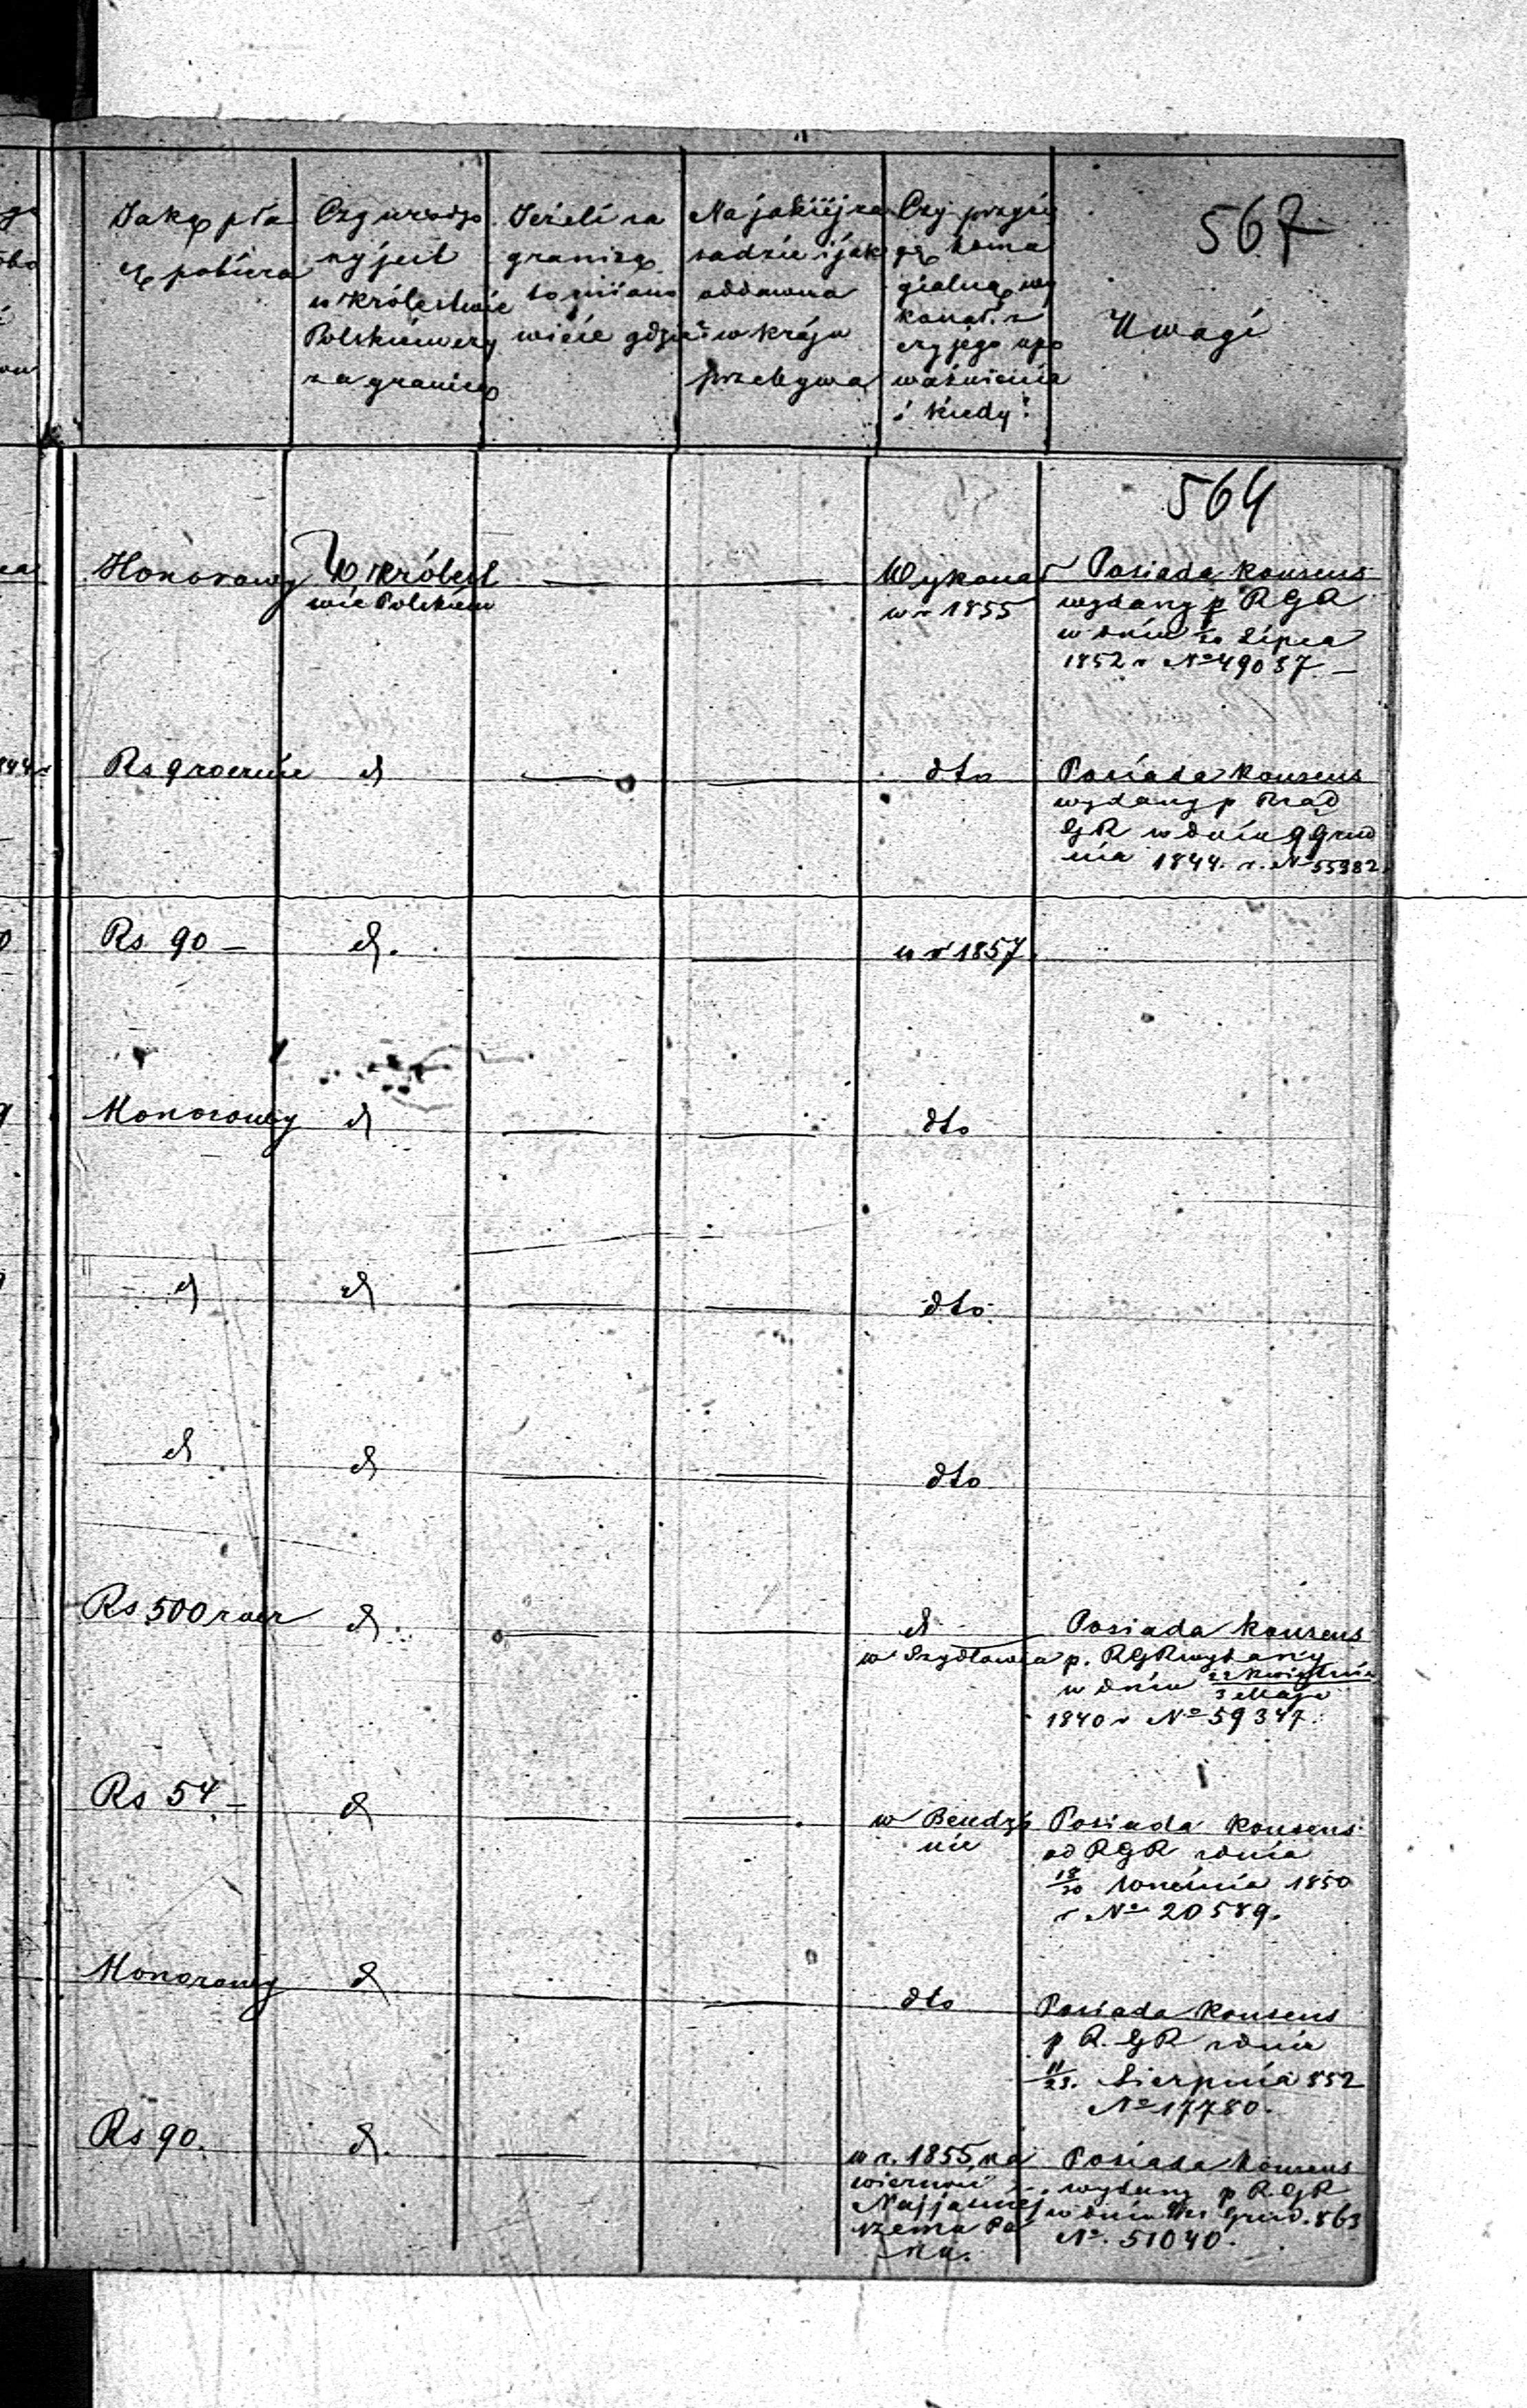 567
Jaką pła
cę pobiera
Czy urodzo
ny jest
w Królestwie
Polskiém czy
za granicą
Jeżeli za
granicą
to miano
wicie gdzie
Na jakiéj za
sadzie i jak
oddawna
w kraju
przebywa
Czy przysię
gę homa
gialną wy
konał z
czyjego upo
ważnienia
i kiedy?
Uwagi
564
Honorowy
W Królest
wie Polskiém
Wykonał
w r 1855
Posiada konsens
wydany p RGR
w dniu Lipca
1852 r No 49037 –
Rs 9 rocznie
d
dto
Posiada konsens
wydany p Rząd
GR w dniu 9 Grud
nia 1844 r. No 55982.
Rs 90 –
d.
w r 1857
Honorowy
d
dto
d
d
dto
d
d
dto
Rs 500 rocz
d.
d
w Szydłowcu
Posiada konsens
p. RGR wydany
w dniu 22 Kwietnia
3 Maja
1840 r No 59347.
Rs 54 –
d
w Bendzi
nie
Posiada konsens
od RGR z dnia
18/30 Września 1850
r No 20589.
Honorowy
d
dto
Posiada konsens
p R. GR z dnia
11/23. Sierpnia 852
No 17780.
Rs 90.
d.
w r. 1855 na
wierność
Najjaśniej
szemu Pa
nu.
Posiada konsens
wydany p R. GR
w dniu Grud. 863
No. 51040.